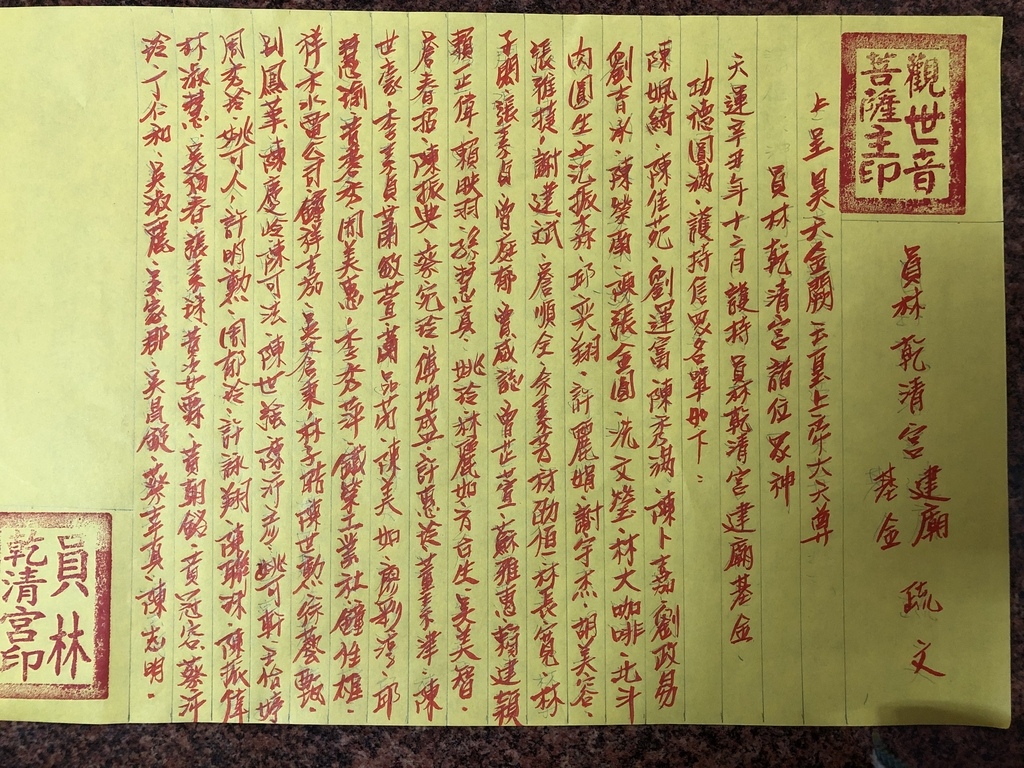 觀世音
菩薩主印
員林乾清宮建廟基金 疏文
上呈昊天金闕玉皇上帝大天尊
員林乾清宮諸位眾神
天運辛丑年十二月護持員林乾清宮建廟基金
功德圓滿、護持信眾名單如下:
陳姵綺、陳佳苑、劉運富、陳秀滿、陳卜嘉、劉政易
劉吉永、陳榮南、陳張金圓、洗文瑩、林大咖啡、北斗
肉圓生、范振森、邱奕翔、許麗娟、謝宇杰、胡美容、
張雅捷、謝建斌、詹順全、余素芳、林劭恒、林長寬、林
子開、張素貞、曾庭郁、曾威誌、曾芷萱、蘇雅惠、賴建穎
賴正偉、賴映羽、孫慧真、姚玲、林麗如、方合生、吳美智、
詹春招、陳振典、蔡宛玲、傅坤盛、許惠茹、董素津、陳
世豪、李素貞、蕭敏萱、蕭品宥、陳美如、廖彩淳、邱
慧瑜、黃春香、周美惠、李秀萍、鐵榮工業社、鐘佳雄、
祥禾水電公司、鐘祥嘉、吳倉東、林子皓、陳世勲、徐藝甄、
劉鳳筆、陳慶峻、陳可法、陳世綜、陳沂彥、姚可新、王怡婷
周秀玲、姚可人、許明勲、周郁玲、許詠翔、陳聯琳、陳振偉
林淑慧、吳瑞春、張素珠、黃姿霖、黃朝銘、黃冠容、蔡沂
玲、丁仁和、吳淑麗、吳家郡、吳昌錠、蔡幸真、陳志明、
員林
乾清宮印